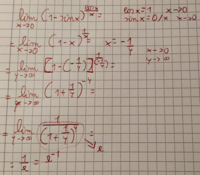 lim x→0 (1-sinx)^(cosx/x) = cosx=1 x→0
sinx=0/x x→0
= lim x→0 (1-x)^(1/x) = x=-1/y x→0
y→∞
= lim y→∞ [1-(-1/y)]^(1/(-1/y)) =
= lim y→∞ (1+1/y)^(-y) =
= lim y→∞ 1/(1+1/y)^y = → e
= 1/e = e^(-1)